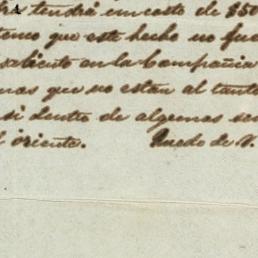 A tendrá un costo de $50
temo que este hecho no fue
saliente en la Compañia
nas que no están al tanto
si dentro de algunas sem
l oriente. Quedo de V.